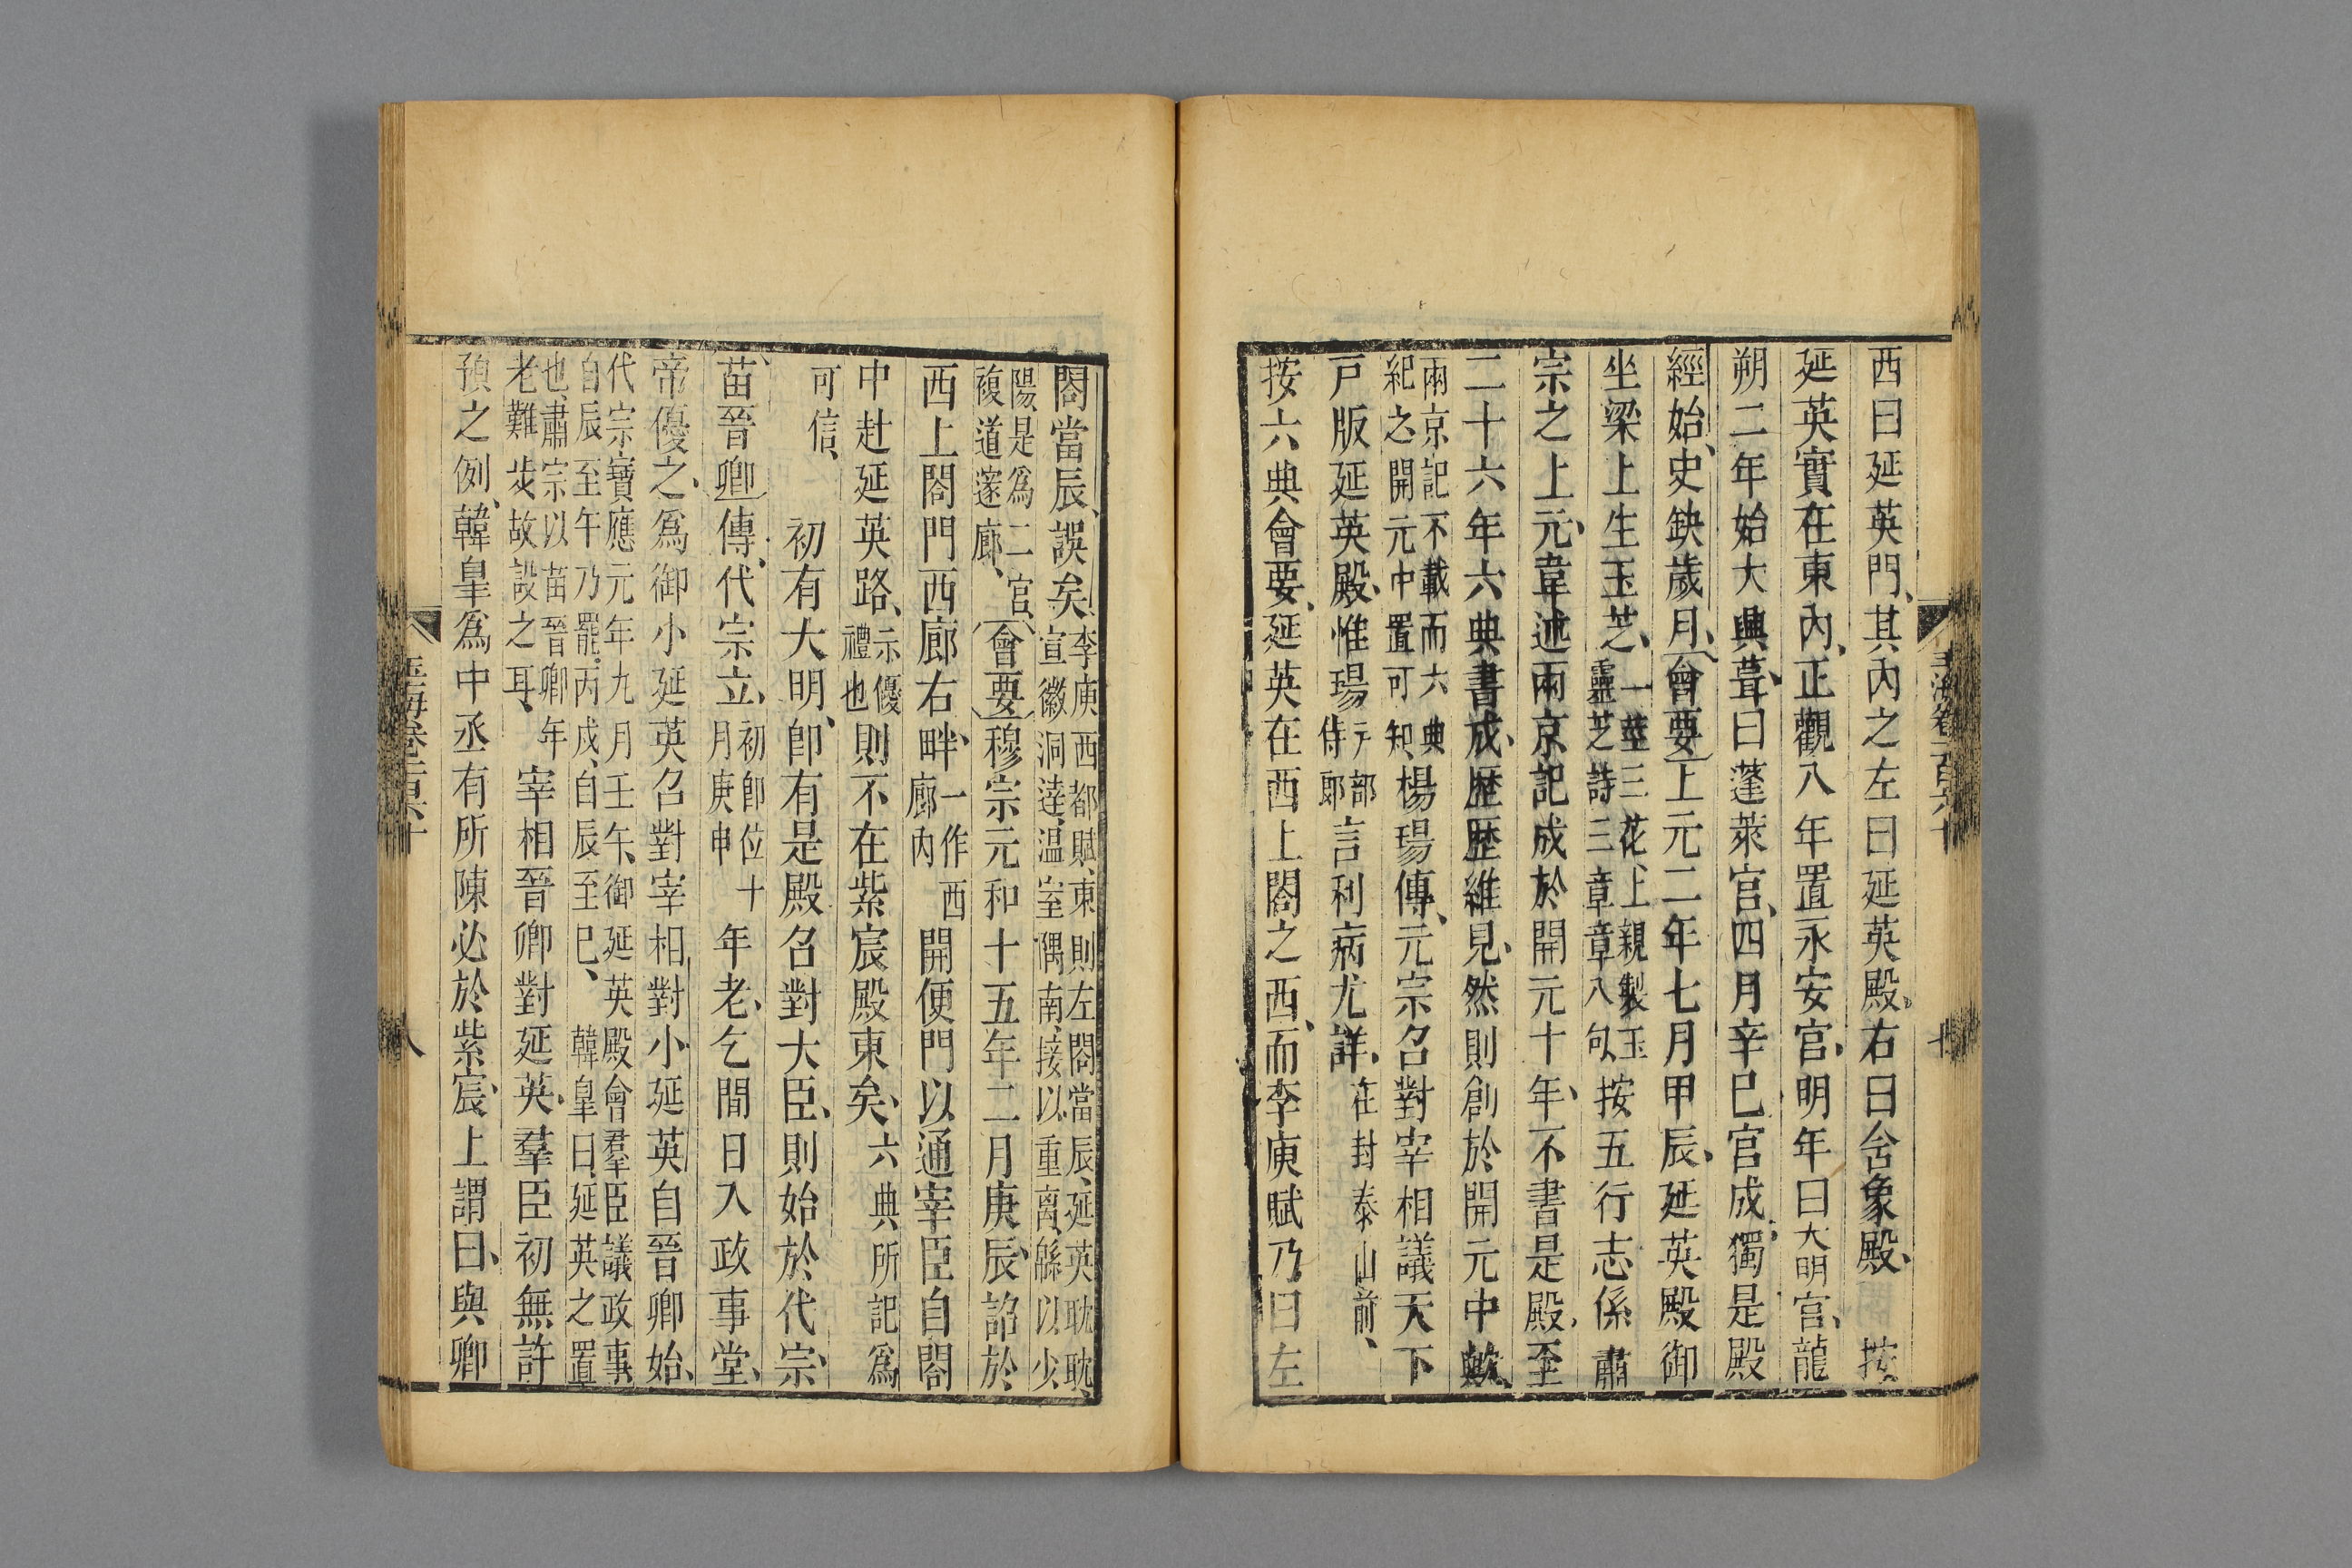 西曰延英門、其內之左曰延英殿、右曰含象殿、按
延英實在東內、正觀八年置永安宮、明年曰大明宮、龍
朔二年始大興葺、曰蓬萊宮、四月辛巳宮成、獨是殿
經始、史缺歲月、會要上元二年七月甲辰、延英殿御
坐梁上生玉芝、一莖三花、上親製玉靈芝詩三章章八句、按五行志係肅
宗之上元、韋述兩京記成於開元十年、不書是殿、至
二十六年六典書成、歷歷維見、然則創於開元中歟、
兩京記不載而六典紀之開元中置可知、楊瑒傳、元宗召對宰相議天下
戸版延英殿、惟瑒戸部侍郎言利病尤詳、在封泰山前、
按六典會要、延英在西上閤之西、而李庾賦乃曰左
閤當辰、誤矣、李庾西都賦、東則左閤當辰、延英耽耽、宣徽洞達、溫室隅南、接以重離、緜以少
陽、是爲二宮、複道邃廊、會要穆宗元和十五年二月庚辰、詔於
西上閤門西廊右畔、一作西廊內開便門以通宰臣自閤
中赴延英路、示優禮也則不在紫宸殿東矣、六典所記爲
可信、初有大明、卽有是殿召對大臣、則始於代宗、
苗晉卿傳、代宗立、初卽位十月庚申年老、乞間日入政事堂、
帝優之、爲御小延英召對宰相對小延英自晉卿始、
代宗寶應元年九月壬午、御延英殿會羣臣議政事自辰至午乃罷、丙戌、自辰至巳、韓皐曰、延英之置
也、肅宗以苗晉卿年老難步故設之耳、宰相晉卿對延英、羣臣初無許
預之例、韓皐爲中丞有所陳必於紫宸、上謂曰、與卿
玉海卷一百六十
八